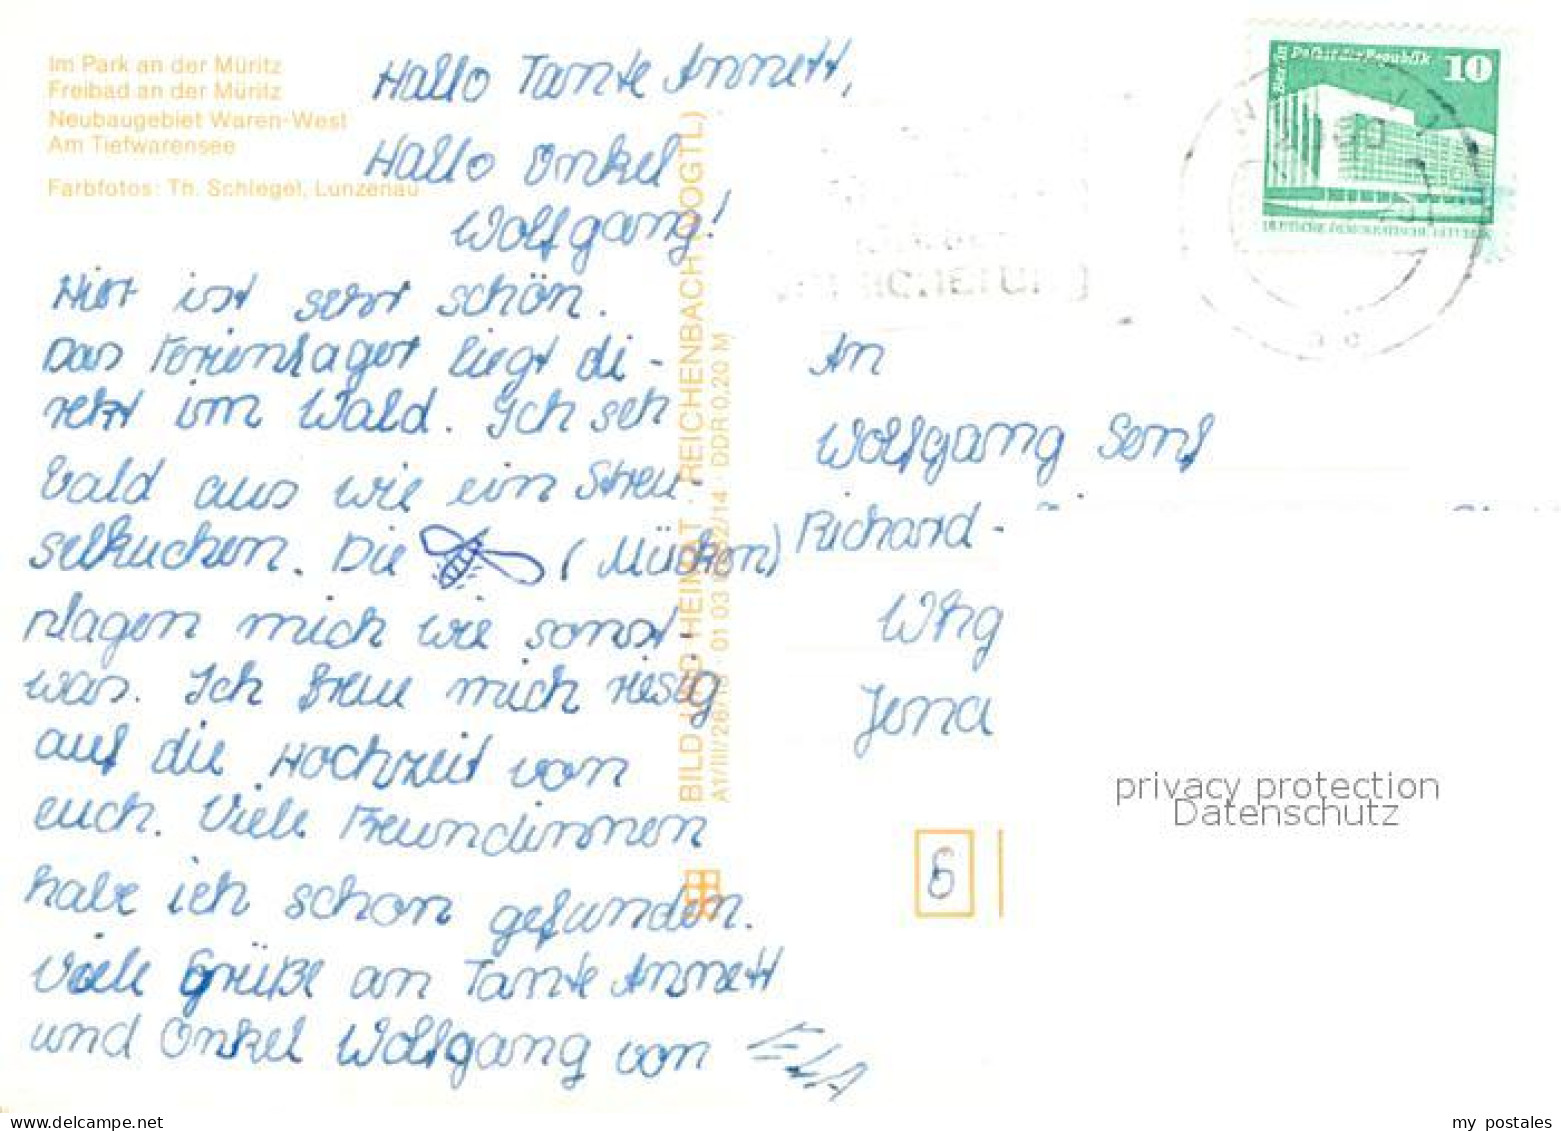 Im Park an der Müritz
Freibad an der Müritz
Neubaugebiet Waren-West
Am Tiefwarensee
Farbfotos: Th. Schlegel, Lunzenau
Hallo Tante Annett,
Hallo Onkel
Wolfgang!
Hier ist sehr schön.
Das Ferienlager liegt di-
rekt im Wald. Ich seh
bald aus wie ein Streu-
selkuchen. Die (Mücken)
plagen mich wie sonst-
was. Ich freu mich riesig
auf die Hochzeit von
euch. Viele Freundinnen
habe ich schon gefunden.
Viele Grüße an Tante Annett
und Onkel Wolfgang von ELA
BILD UND HEIMAT REICHENBACH (VOGTL)
A1/III/26/13 01 03 DDR 0,20 M
Berlin Palast der Republik 10
DEUTSCHE DEMOKRATISCHE REPUBLIK
An
Wolfgang Senf
Richard-
Whg
Jena
6
privacy protection
Datenschutz
my postales